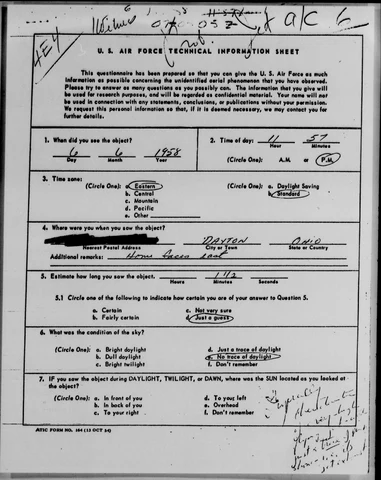 1 Witness
a/c 6
4E4
U. S. AIR FORCE TECHNICAL INFORMATION SHEET
This questionnaire has been prepared so that you can give the U. S. Air Force as much
information as possible concerning the unidentified aerial phenomenon that you have observed.
Please try to answer as many questions as you possibly can. The information that you give will
be used for research purposes, and will be regarded as confidential material. Your name will not
be used in connection with any statements, conclusions, or publications without your permission.
We request this personal information so that, if it is deemed necessary, we may contact you for
further details.
1. When did you see the object?
6 6 1958
Day Month Year
2. Time of day: 11 57
Hour Minutes
(Circle One): A.M. or P.M.
3. Time zone:
(Circle One): a. Eastern
b. Central
c. Mountain
d. Pacific
e. Other
(Circle One): a. Daylight Saving
b. Standard
4. Where were you when you saw the object?
DAYTON OHIO
Nearest Postal Address City or Town State or Country
Additional remarks: Home faces east
5. Estimate how long you saw the object. 1 1/2
Hours Minutes Seconds
5.1 Circle one of the following to indicate how certain you are of your answer to Question 5.
a. Certain
b. Fairly certain
c. Not very sure
d. Just a guess
6. What was the condition of the sky?
(Circle One): a. Bright daylight
b. Dull daylight
c. Bright twilight
d. Just a trace of daylight
e. No trace of daylight
f. Don't remember
7. IF you saw the object during DAYLIGHT, TWILIGHT, or DAWN, where was the SUN located as you looked at
the object?
(Circle One): a. In front of you
b. In back of you
c. To your right
d. To your left
e. Overhead
f. Don't remember
ATIC FORM NO. 164 (13 OCT 54)